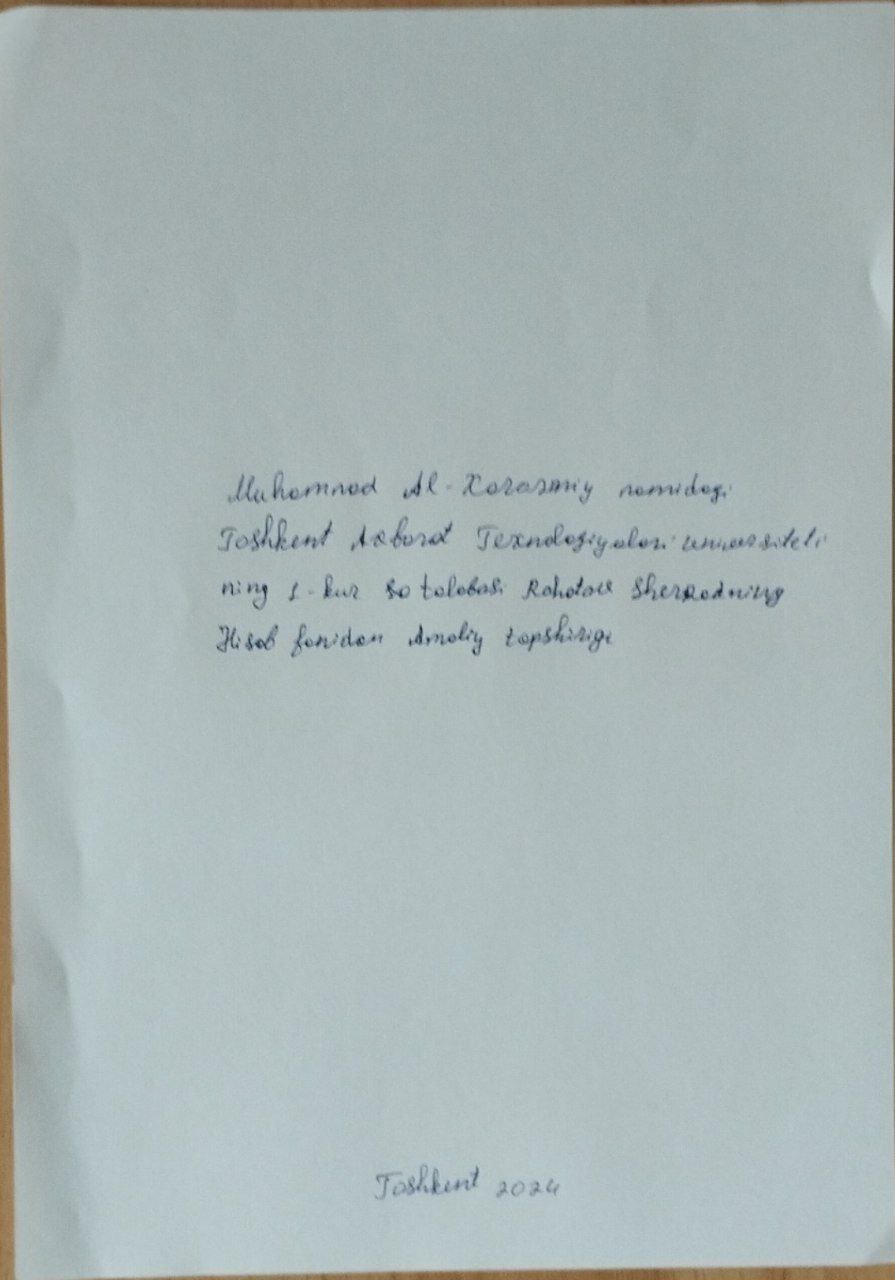 Muhammad Al-Xorazmiy nomidagi
Toshkent Axborot Texnologiyalari universiteti
ning 1-kur so talabasi Rahatov Sherzodning
Hisob fanidan Amaliy topshirigi
Toshkent 2024